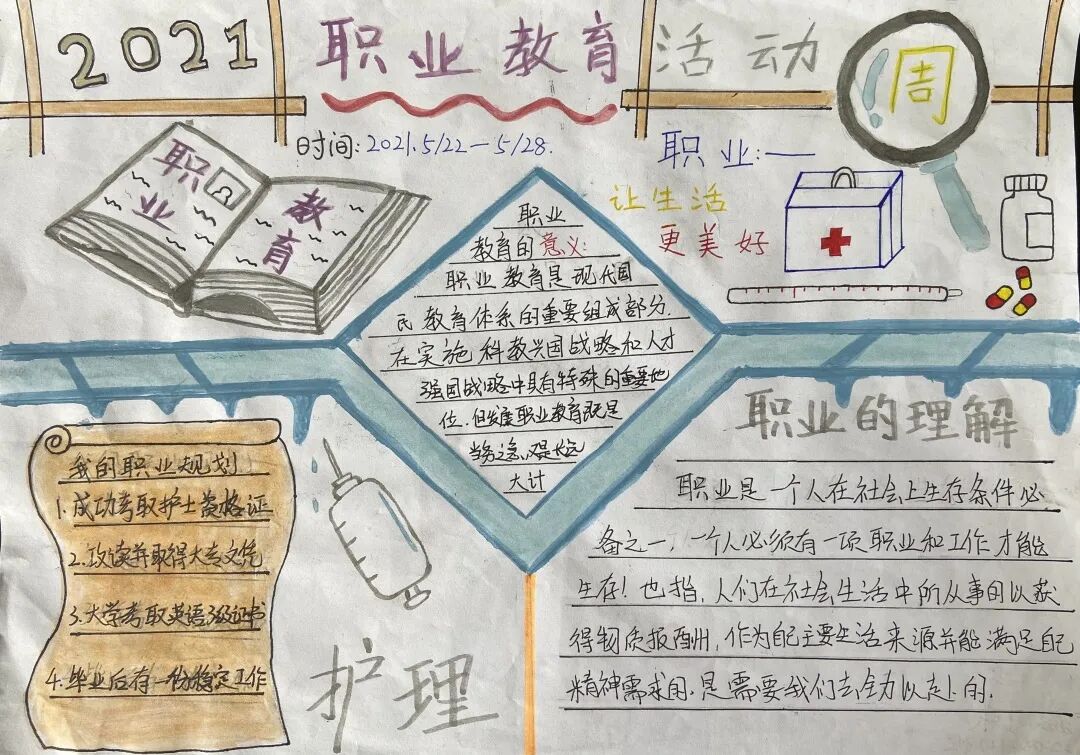 2021 职业教育活动周
时间:2021.5/22—5/28.
职业:——
让生活
更美好
职业
教育
职业
教育的意义:
职业教育是现代国
民教育体系的重要组成部分.
在实施科教兴国战略和人才
强国战略中具有特殊的重要地
位.但发展职业教育既是
当务之急,又是长远
大计
我的职业规划
1.成功考取护士资格证
2.攻读并取得大专文凭
3.大学考取英语3级证书
4.毕业后有一份稳定工作
护理
职业的理解
职业是一个人在社会上生存条件必
备之一,一个人必须有一项职业和工作才能
生存!也指,人们在社会生活中所从事的以获
得物质报酬,作为自己主要生活来源并能满足自己
精神需求的.是需要我们去全力以赴的.